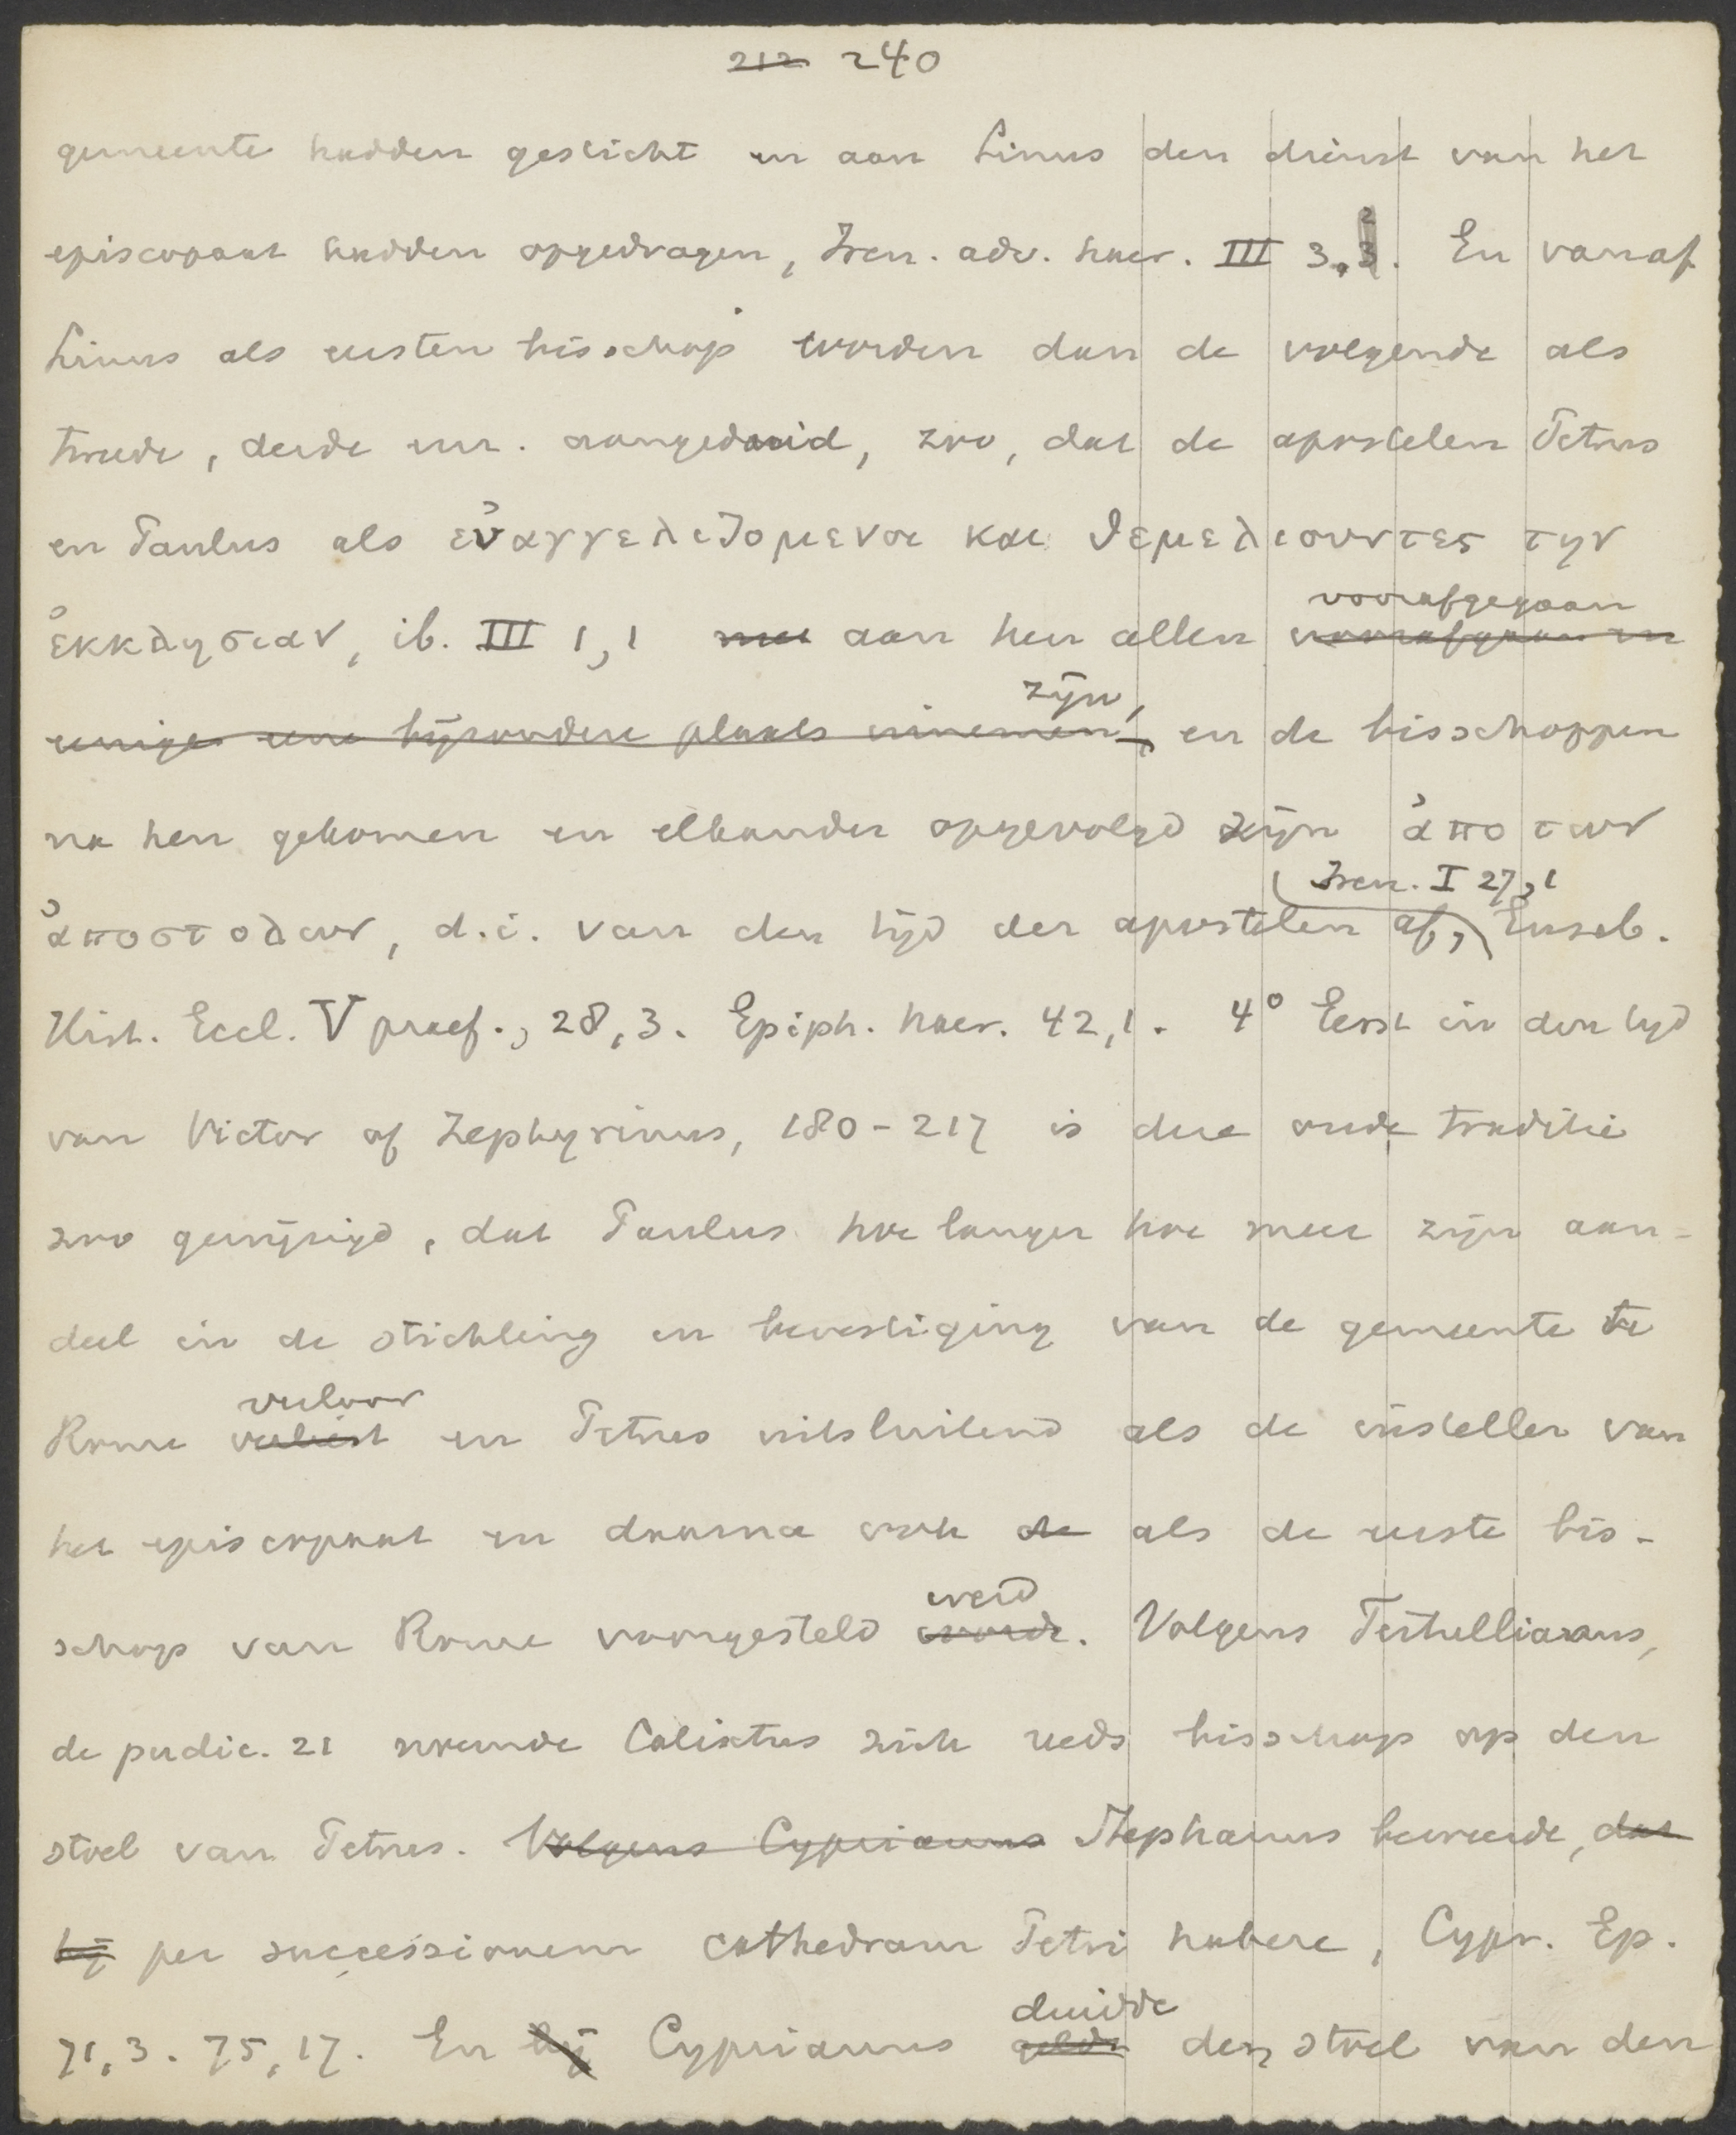 212 240
gemeente hadden gesticht en aan Linus den dienst van het
episcopaat hadden opgedragen, Iren. adv. haer. III 3,3 2. En vanaf
Linus als eersten bisschop worden dan de volgende als
tweede, derde enz. aangeduid, zoo, dat de apostelen Petrus
en Paulus als εὐαγγελιζομενοι και θεμελιουντες την
ἐκκλησιαν, ib. III 1,1 met aan hen allen voorafgaan en voorafgegaan
eenige eene bijzondere plaats innemen, zijn, en de bisschoppen
na hen gekomen en elkander opgevolgd zijn ἀπο των
ἀποστολων, d.i. van den tijd der apostelen af, Iren. I 27,1 Euseb.
Hist. Eccl. V praef., 28,3. Epiph. haer. 42,1. 4° Eerst in den tijd
van Victor of Zephyrinus, 180-217 is deze oude traditie
zoo gewijzigd, dat Paulus hoe langer hoe meer zijn aan-
deel in de stichting en bevestiging van de gemeente te
Rome verliest verloor en Petrus uitsluitend als de insteller van
het episcopaat en daarna ook de als de eerste bis-
schop van Rome voorgesteld worde werd. Volgens Tertullianus,
de pudic. 21 noemde Calixtus zich reeds bisschop op den
stoel van Petrus. Volgens Cyprianus Stephanus beweerde, dat
hij per successionem cathedram Petri habere, Cypr. Ep.
71,3. 75,17. En hij Cyprianus gelde duidde den stoel van den